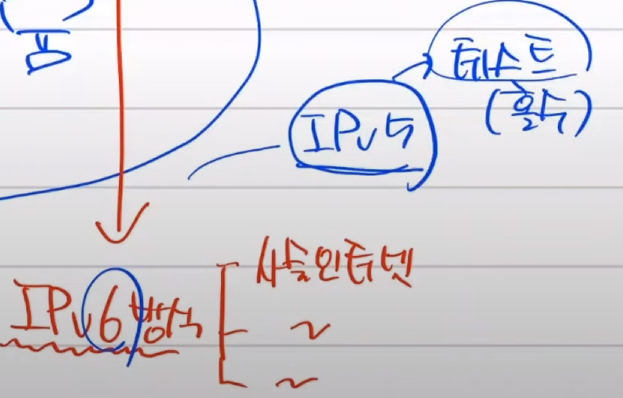 폼
테스트
IPv5
(홀수)
사물인터넷
IPv6 방식
~
~